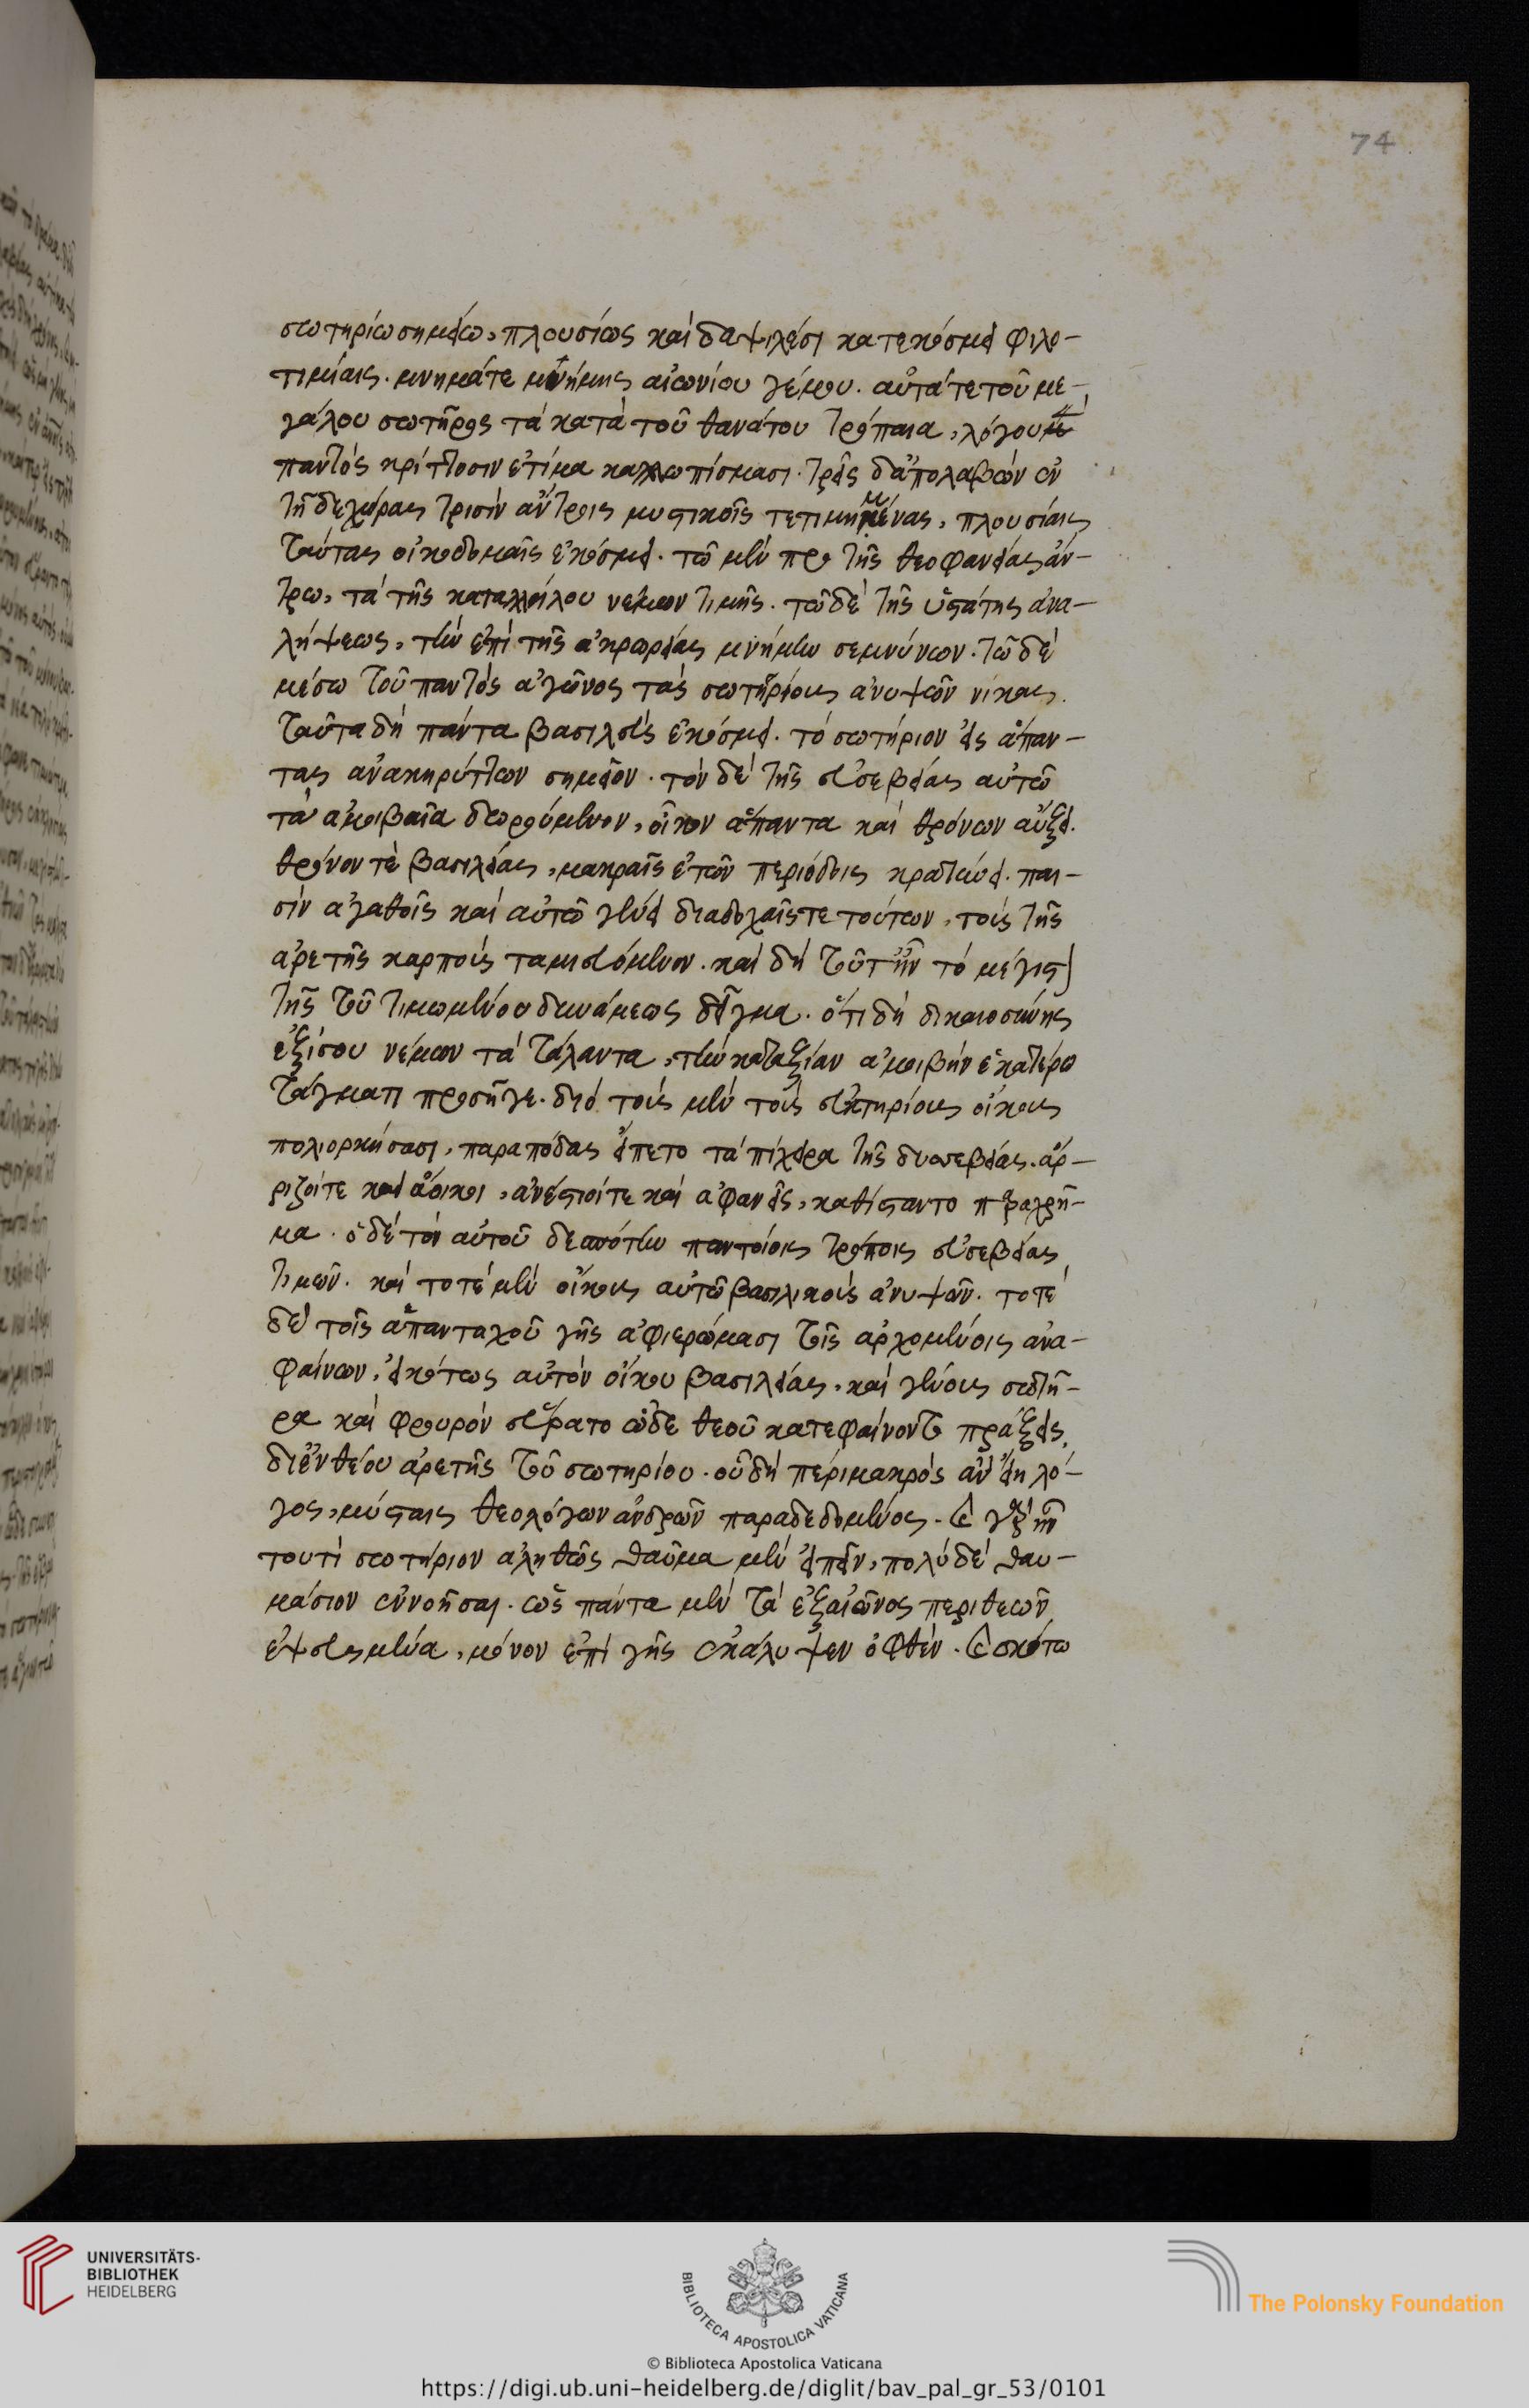 74
σωτηρίω σημείω, πλουσίως καὶ δαψιλέσι κατεκόσμει φιλο-
τιμίαις. μνημάτε μνήμης αἰωνίου γέμου. αὐτά τε τοῦ με-
γάλου σωτῆρος τὰ κατὰ τοῦ θανάτου τρόπαια, λόγου
παντὸς κρίττοσιν ἐτίμα καλλωπίσμασι. τρεῖς δ' ἀπολαβὼν ἐν
τῆ δε χώρας τρισὶν ἄντροις μυστικοῖς τετιμημένας, πλουσίαις
ταύτας οἰκοδομαῖς ἐκόσμει. τῶ μὲν πρὸ τῆς θεοφανείας ἄν-
τρω, τὰ τῆς καταλλήλου νέμων τιμῆς. τῶ δὲ τῆς ὑστάτης ἀνα-
λήψεως, τὴν ἐπὶ τῆς ἀκρωρείας μνήμην σεμνύνων. τῶ δὲ
μέσω τοῦ παντὸς ἀγῶνος τὰς σωτηρίους ἀνυψῶν νίκας.
ταῦτα δὴ πάντα βασιλεὺς ἐκόσμει. τὸ σωτήριον εἰς ἅπαν-
τας ἀνακηρύττων σημεῖον. τὸν δὲ τῆς εὐσεβείας αὐτῶ
τὰ ἀμοιβαῖα δωρούμενον, οἶκον ἅπαντα καὶ θρόνων αὔξει.
θρόνον τὲ βασιλείας, μακραῖς ἐτῶν περιόδοις κρατύνει. παι-
σὶν ἀγαθοῖς καὶ αὐτῶ γένει διαδοχαῖς τε τούτων, τοὺς τῆς
ἀρετῆς καρποὺς ταμιευόμενον. καὶ δὴ τοῦτ' ἦν τὸ μέγιστ
τῆς τοῦ τιμωμένου δυνάμεως δεῖγμα. ὅτι δὴ δικαιοσύνης
ἐξίσου νέμων τὰ τάλαντα, τὴν κατ' ἀξίαν ἀμοιβὴν ἑκατέρω
τάγματι προσῆγε. διὸ τοὺς μὲν τοὺς εὐκτηρίους οἴκους
πολιορκήσασι, παραπόδας εἵπετο τἀπίχειρα τῆς δυσσεβείας. ἄρ-
ριζοί τε καὶ ἄοικοι, ἀνέστιοί τε καὶ ἀφανεῖς, καθίσταντο παραχρῆ-
μα. ὁ δὲ τὸν αὐτοῦ δεσπότην παντοίοις τρόποις εὐσεβείας
τιμῶν. καὶ τοτὲ μὲν οἴκους αὐτῶ βασιλικοὺς ἀνυψῶν. τοτὲ
δὲ τοῖς ἁπανταχοῦ γῆς ἀφιερώμασι τοῖς ἀρχομένοις ἀνα-
φαίνων, εἰκότως αὐτὸν οἴκου βασιλείας, καὶ γένους σωτῆ-
ρα καὶ φρουρὸν εὕρατο ὧδε θεοῦ κατεφαίνοντο πράξεις,
δι' ἐνθέου ἀρετῆς τοῦ σωτηρίου. οὗ δὴ πέρι μακρὸς ἂν εἴη λό-
γος, μύσταις θεολόγων ἀνδρῶν παραδεδομένος. καὶ γὰρ ἦν
τουτὶ σωτήριον ἀληθῶς θαῦμα μὲν εἰπεῖν, πολὺ δὲ θαυ-
μάσιον ἐννοῆσαι. ὡς πάντα μὲν τὰ ἐξαιῶνος περιθεῶν
ἐψευσμένα, μόνον ἐπὶ γῆς ἐκάλυψεν ὀφθέν. καὶ σκότω
UNIVERSITÄTS-
BIBLIOTHEK
HEIDELBERG
BIBLIOTECA APOSTOLICA VATICANA
The Polonsky Foundation
© Biblioteca Apostolica Vaticana
https://digi.ub.uni-heidelberg.de/diglit/bav_pal_gr_53/0101